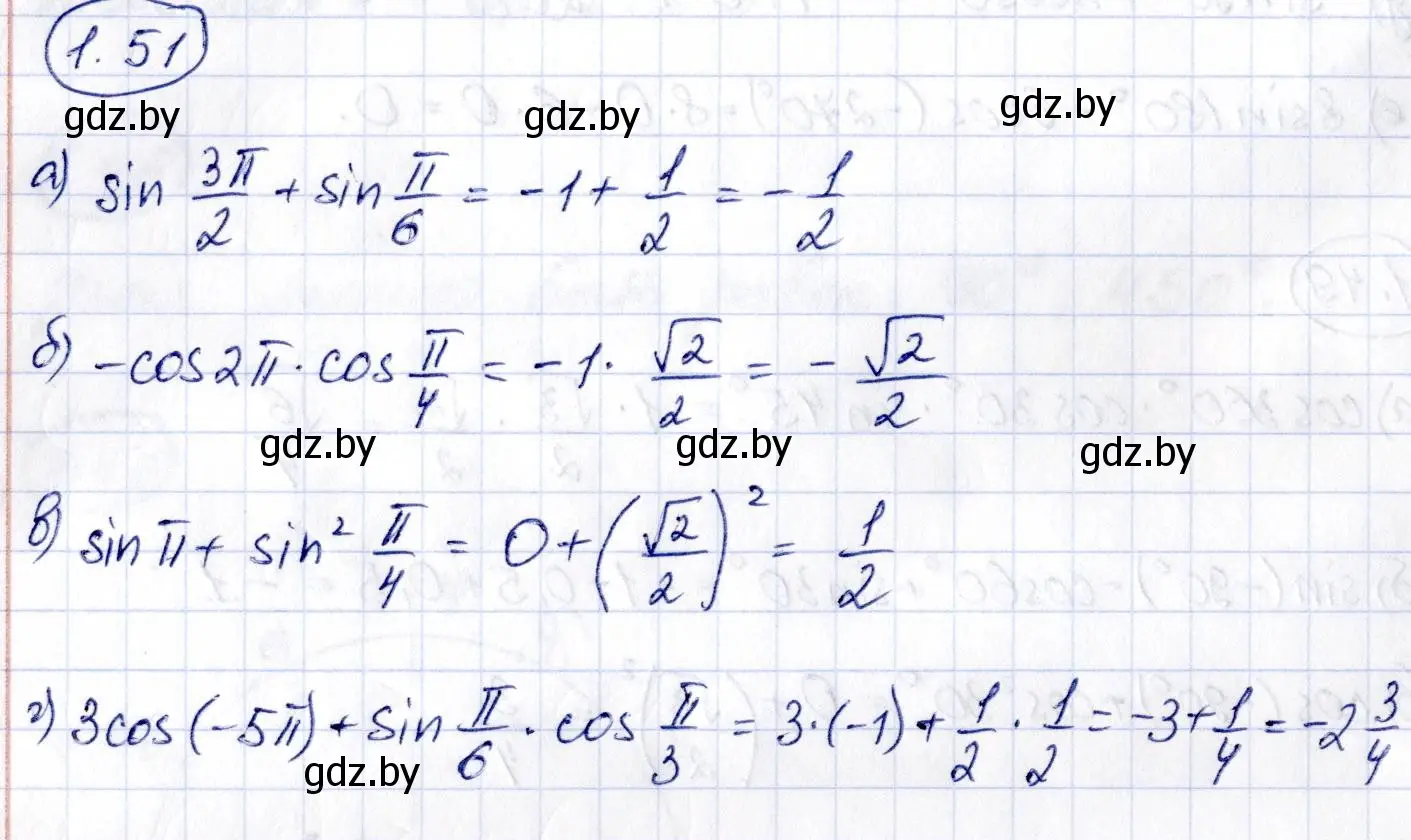 1.51
gdz.by gdz.by gdz.by
а) sin 3π/2 + sin π/6 = -1 + 1/2 = - 1/2
б) -cos2π · cos π/4 = -1 · √2/2 = - √2/2
gdz.by gdz.by gdz.by
в) sin π + sin² π/4 = 0 + (√2/2)² = 1/2
г) 3cos(-5π) + sin π/6 · cos π/3 = 3·(-1) + 1/2 · 1/2 = -3 + 1/4 = -2 3/4
gdz.by